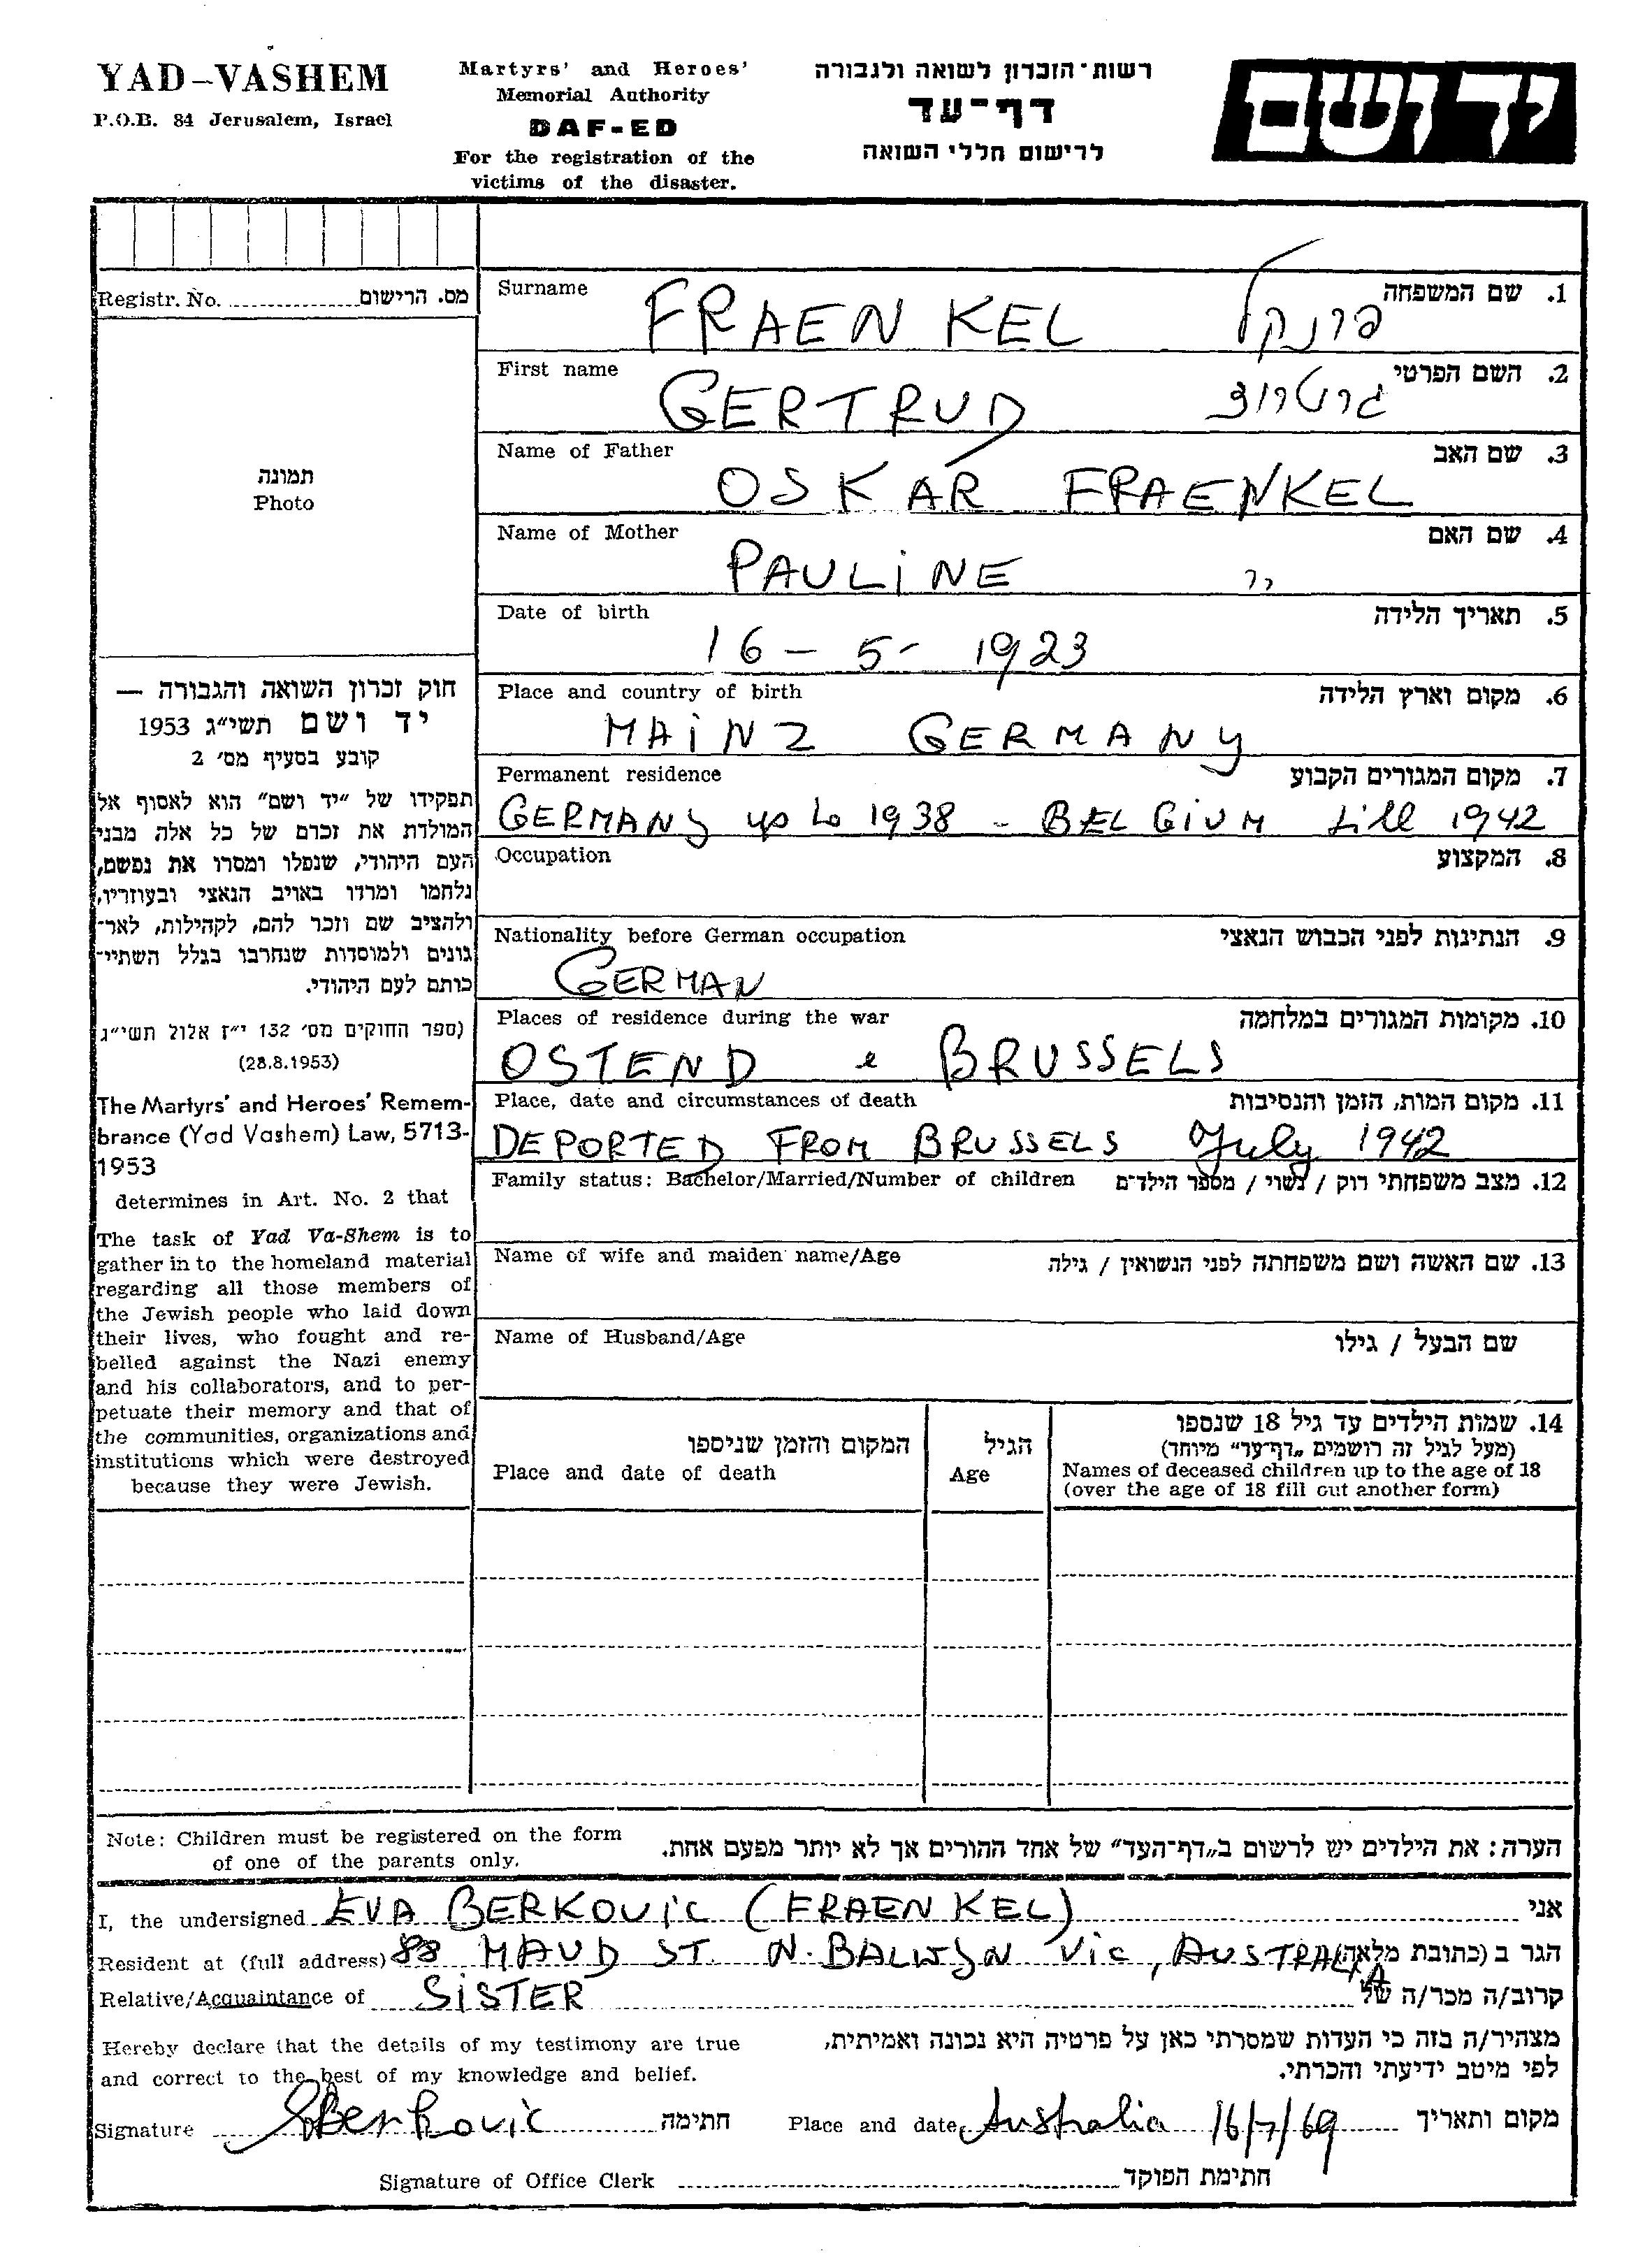 YAD-VASHEM
P.O.B. 84 Jerusalem, Israel
Martyrs' and Heroes'
Memorial Authority
DAF-ED
For the registration of the
victims of the disaster.
רשות-הזכרון לשואה ולגבורה
דף-עד
לרישום חללי השואה
יד ושם
Registr. No. מס. הרישום
תמונה
Photo
חוק זכרון השואה והגבורה —
יד ושם תשי״ג 1953
קובע בסעיף מס׳ 2
תפקידו של ״יד ושם״ הוא לאסוף אל
המולדת את זכרם של כל אלה מבני
העם היהודי, שנפלו ומסרו את נפשם,
נלחמו ומרדו באויב הנאצי ובעוזריו,
ולהציב שם וזכר להם, לקהילות, לאר־
גונים ולמוסדות שנחרבו בגלל השתיי־
כותם לעם היהודי.
(ספר החוקים מס׳ 132 י״ז אלול תשי״ג
(28.8.1953)
The Martyrs' and Heroes' Remem-
brance (Yad Vashem) Law, 5713-
1953
determines in Art. No. 2 that
The task of Yad Va-Shem is to
gather in to the homeland material
regarding all those members of
the Jewish people who laid down
their lives, who fought and re-
belled against the Nazi enemy
and his collaborators, and to per-
petuate their memory and that of
the communities, organizations and
institutions which were destroyed
because they were Jewish.
Surname 1. שם המשפחה
FRAENKEL פרנקל
First name 2. השם הפרטי
GERTRUD גרטרוד
Name of Father 3. שם האב
OSKAR FRAENKEL
Name of Mother 4. שם האם
PAULINE "
Date of birth 5. תאריך הלידה
16 - 5 - 1923
Place and country of birth 6. מקום וארץ הלידה
MAINZ GERMANY
Permanent residence 7. מקום המגורים הקבוע
GERMANY up to 1938 - BELGIUM till 1942
Occupation 8. המקצוע
Nationality before German occupation 9. הנתינות לפני הכבוש הנאצי
GERMAN
Places of residence during the war 10. מקומות המגורים במלחמה
OSTEND e BRUSSELS
Place, date and circumstances of death 11. מקום המות, הזמן והנסיבות
DEPORTED FROM BRUSSELS July 1942
Family status: Bachelor/Married/Number of children 12. מצב משפחתי רוק / נשוי / מספר הילדים
Name of wife and maiden name/Age 13. שם האשה ושם משפחתה לפני הנשואין / גילה
Name of Husband/Age שם הבעל / גילו
המקום והזמן שניספו
Place and date of death
הגיל
Age
14. שמות הילדים עד גיל 18 שנספו
(מעל לגיל זה רושמים „דף־עד״ מיוחד)
Names of deceased children up to the age of 18
(over the age of 18 fill out another form)
Note: Children must be registered on the form
of one of the parents only.
הערה: את הילדים יש לרשום ב„דף־העד״ של אחד ההורים אך לא יותר מפעם אחת.
I, the undersigned EVA BERKOVIC (FRAENKEL) אני
Resident at (full address) 88 MAUD ST. N. BALWYN Vic, AUSTRALIA הגר ב (כתובת מלאה)
Relative/Acquaintance of SISTER קרוב/ה מכר/ה של
Hereby declare that the details of my testimony are true
and correct to the best of my knowledge and belief.
מצהיר/ה בזה כי העדות שמסרתי כאן על פרטיה היא נכונה ואמיתית,
לפי מיטב ידיעתי והכרתי.
Signature EBerkovic חתימה Place and date, Australia 16/7/69 מקום ותאריך
Signature of Office Clerk חתימת הפוקד